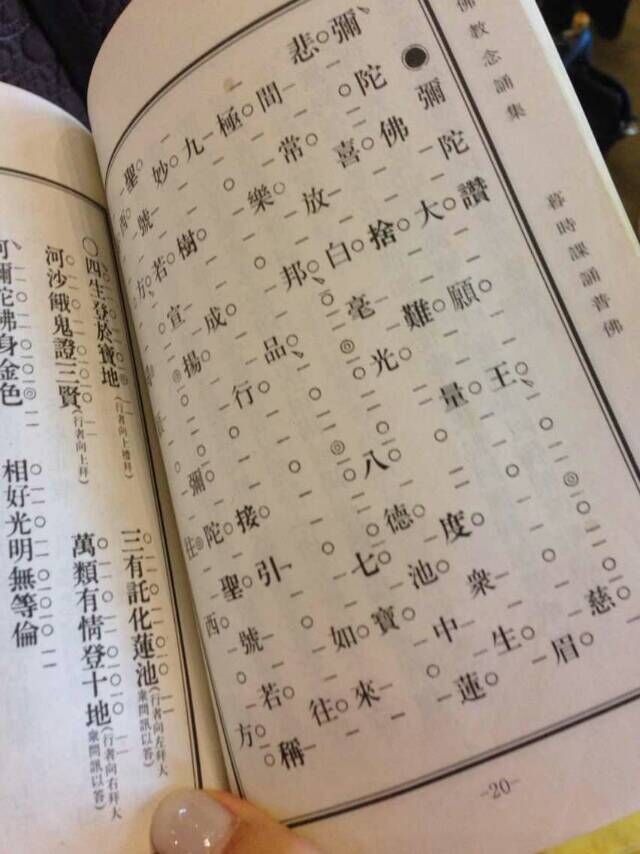 佛教念誦集 暮時課誦普佛
●彌陀讚
彌陀佛大願王慈
悲喜捨難量眉
間常放白毫光度眾生
極樂邦八德池中蓮
九品七寶
妙樹成行如來
聖號若宣揚接引往
西方彌陀聖號若稱
往西方
-20-
○四生登於寶地(行者向上禮拜) 三有託化蓮池(行者向左拜大眾問訊以答)
河沙餓鬼證三賢(行者向上拜) 萬類有情登十地(行者向右拜大眾問訊以答)
阿彌陀佛身金色 相好光明無等倫